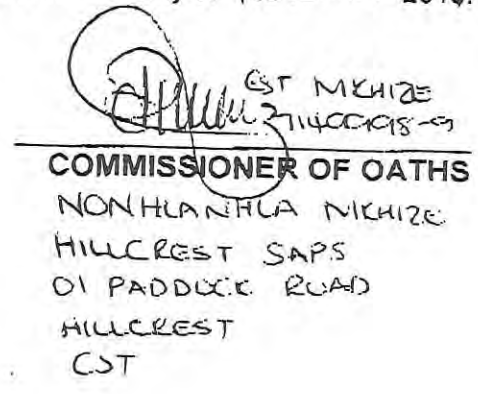 2016.
CST MKHIZE
COMMISSIONER OF OATHS
NONHLANHLA MKHIZE
HILLCREST SAPS
01 PADDOCK ROAD
HILLCREST
CST